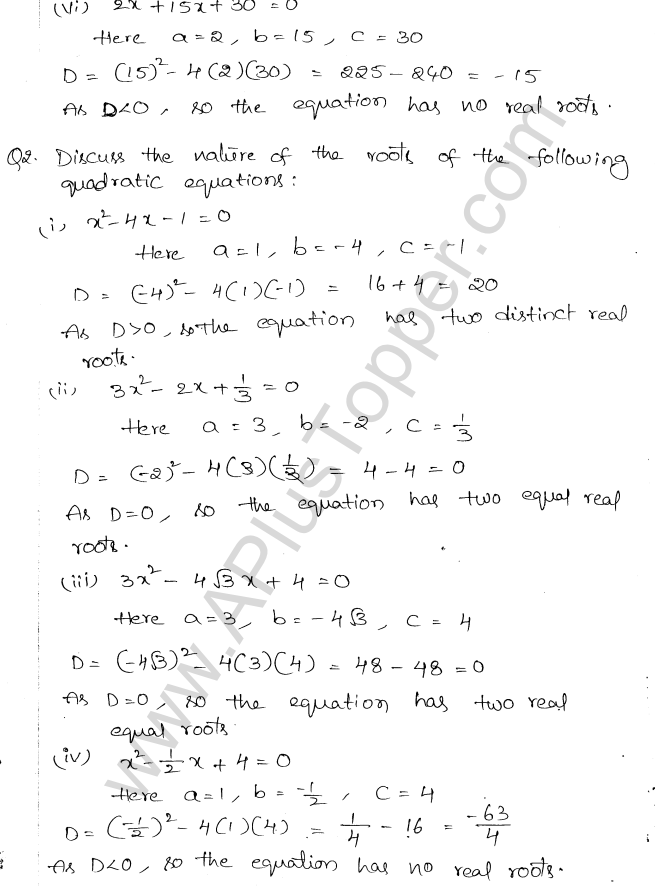 (vi) 2x² + 15x + 30 = 0
Here a = 2, b = 15, c = 30
D = (15)² - 4(2)(30) = 225 - 240 = -15
As D<0, so the equation has no real roots.
Q2. Discuss the nature of the roots of the following
quadratic equations:
(i) x² - 4x - 1 = 0
Here a = 1, b = -4, c = -1
D = (-4)² - 4(1)(-1) = 16 + 4 = 20
As D>0, so the equation has two distinct real
roots.
(ii) 3x² - 2x + 1/3 = 0
Here a = 3, b = -2, c = 1/3
D = (-2)² - 4(3)(1/3) = 4 - 4 = 0
As D=0, so the equation has two equal real
roots.
(iii) 3x² - 4√3x + 4 = 0
Here a = 3, b = -4√3, c = 4
D = (-4√3)² - 4(3)(4) = 48 - 48 = 0
As D=0, so the equation has two real
equal roots.
(iv) x² - 1/2 x + 4 = 0
Here a = 1, b = -1/2, c = 4
D = (-1/2)² - 4(1)(4) = 1/4 - 16 = -63/4
As D<0, so the equation has no real roots.
www.APlusTopper.com